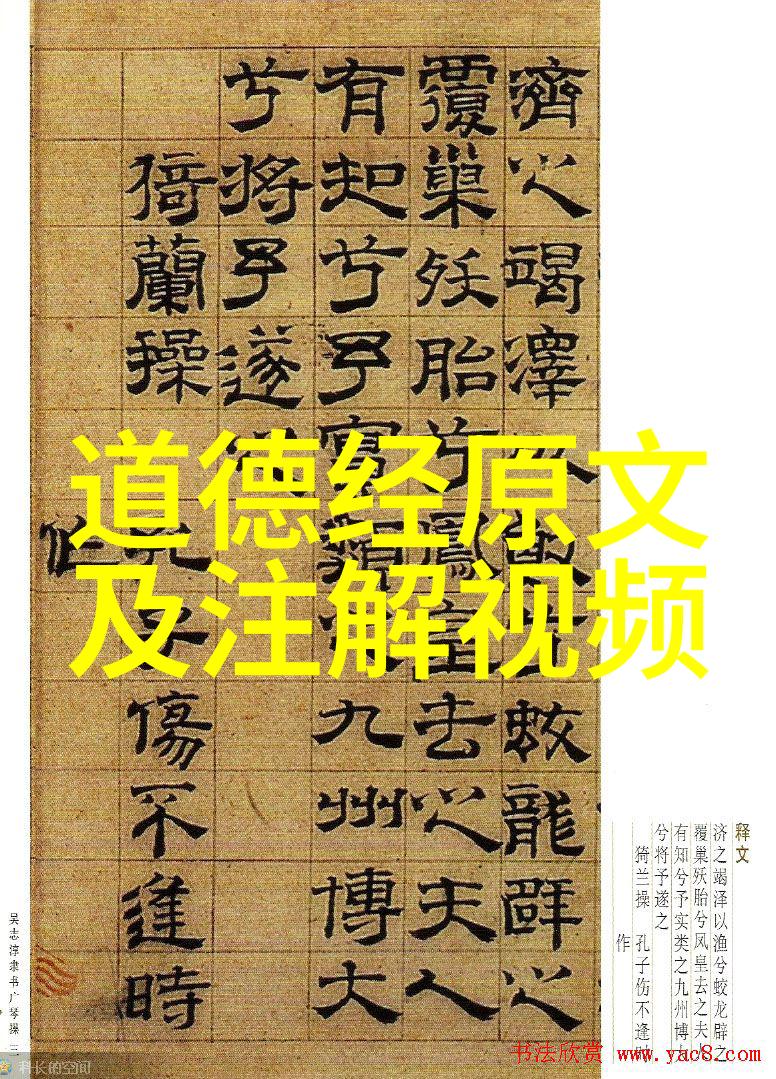 濟之竭澤蛟龍辟之
覆巢殀胎兮鳳皇去之夫人
有知兮予實類之九州博大
兮將予遂之
猗蘭操 孔子傷不逢時
作
道德经原文
及注解视频
释文
济之竭泽以渔兮蛟龙辟之
覆巢殀胎兮凤皇去之夫
有知兮予实类之九州博
兮将予遂之
猗兰操 孔子伤不逢
作
吴志淳隶书广琴操 三
科长的空间
书法欣赏 www.yac8.com